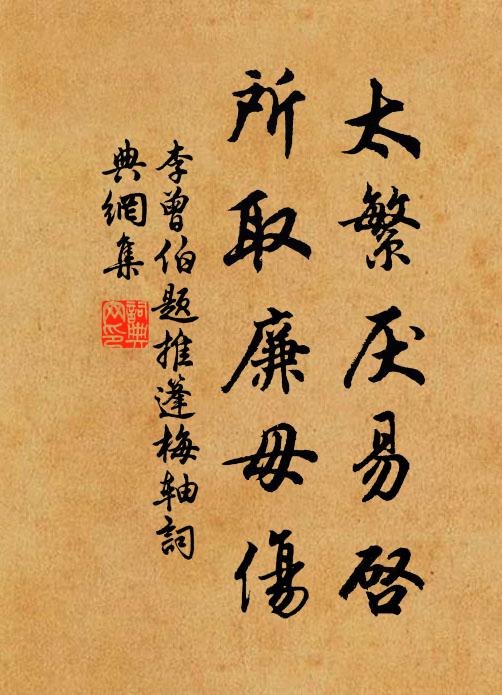 太繁厌易啓
所取廉毋傷
李曾伯题推篷梅轴詞
典網集
詞典
网印